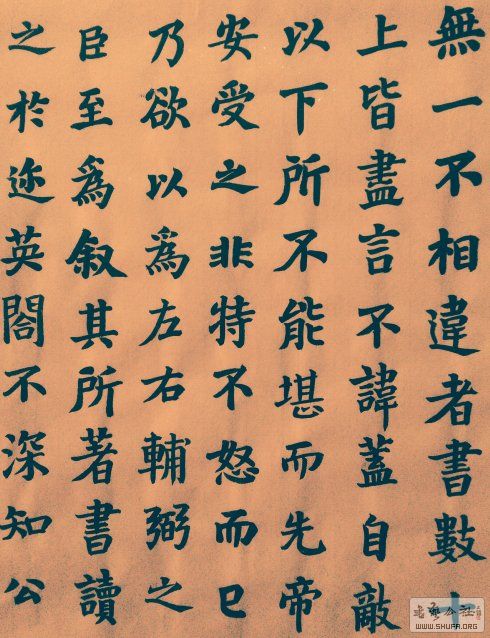 無一不相違者書數十
上皆盡言不諱蓋自敵
以下所不能堪而先帝
安受之非特不怒而已
乃欲以爲左右輔弼之
臣至爲叙其所著書讀
之於迩英閤不深知公
WWW.SHUFA.ORG